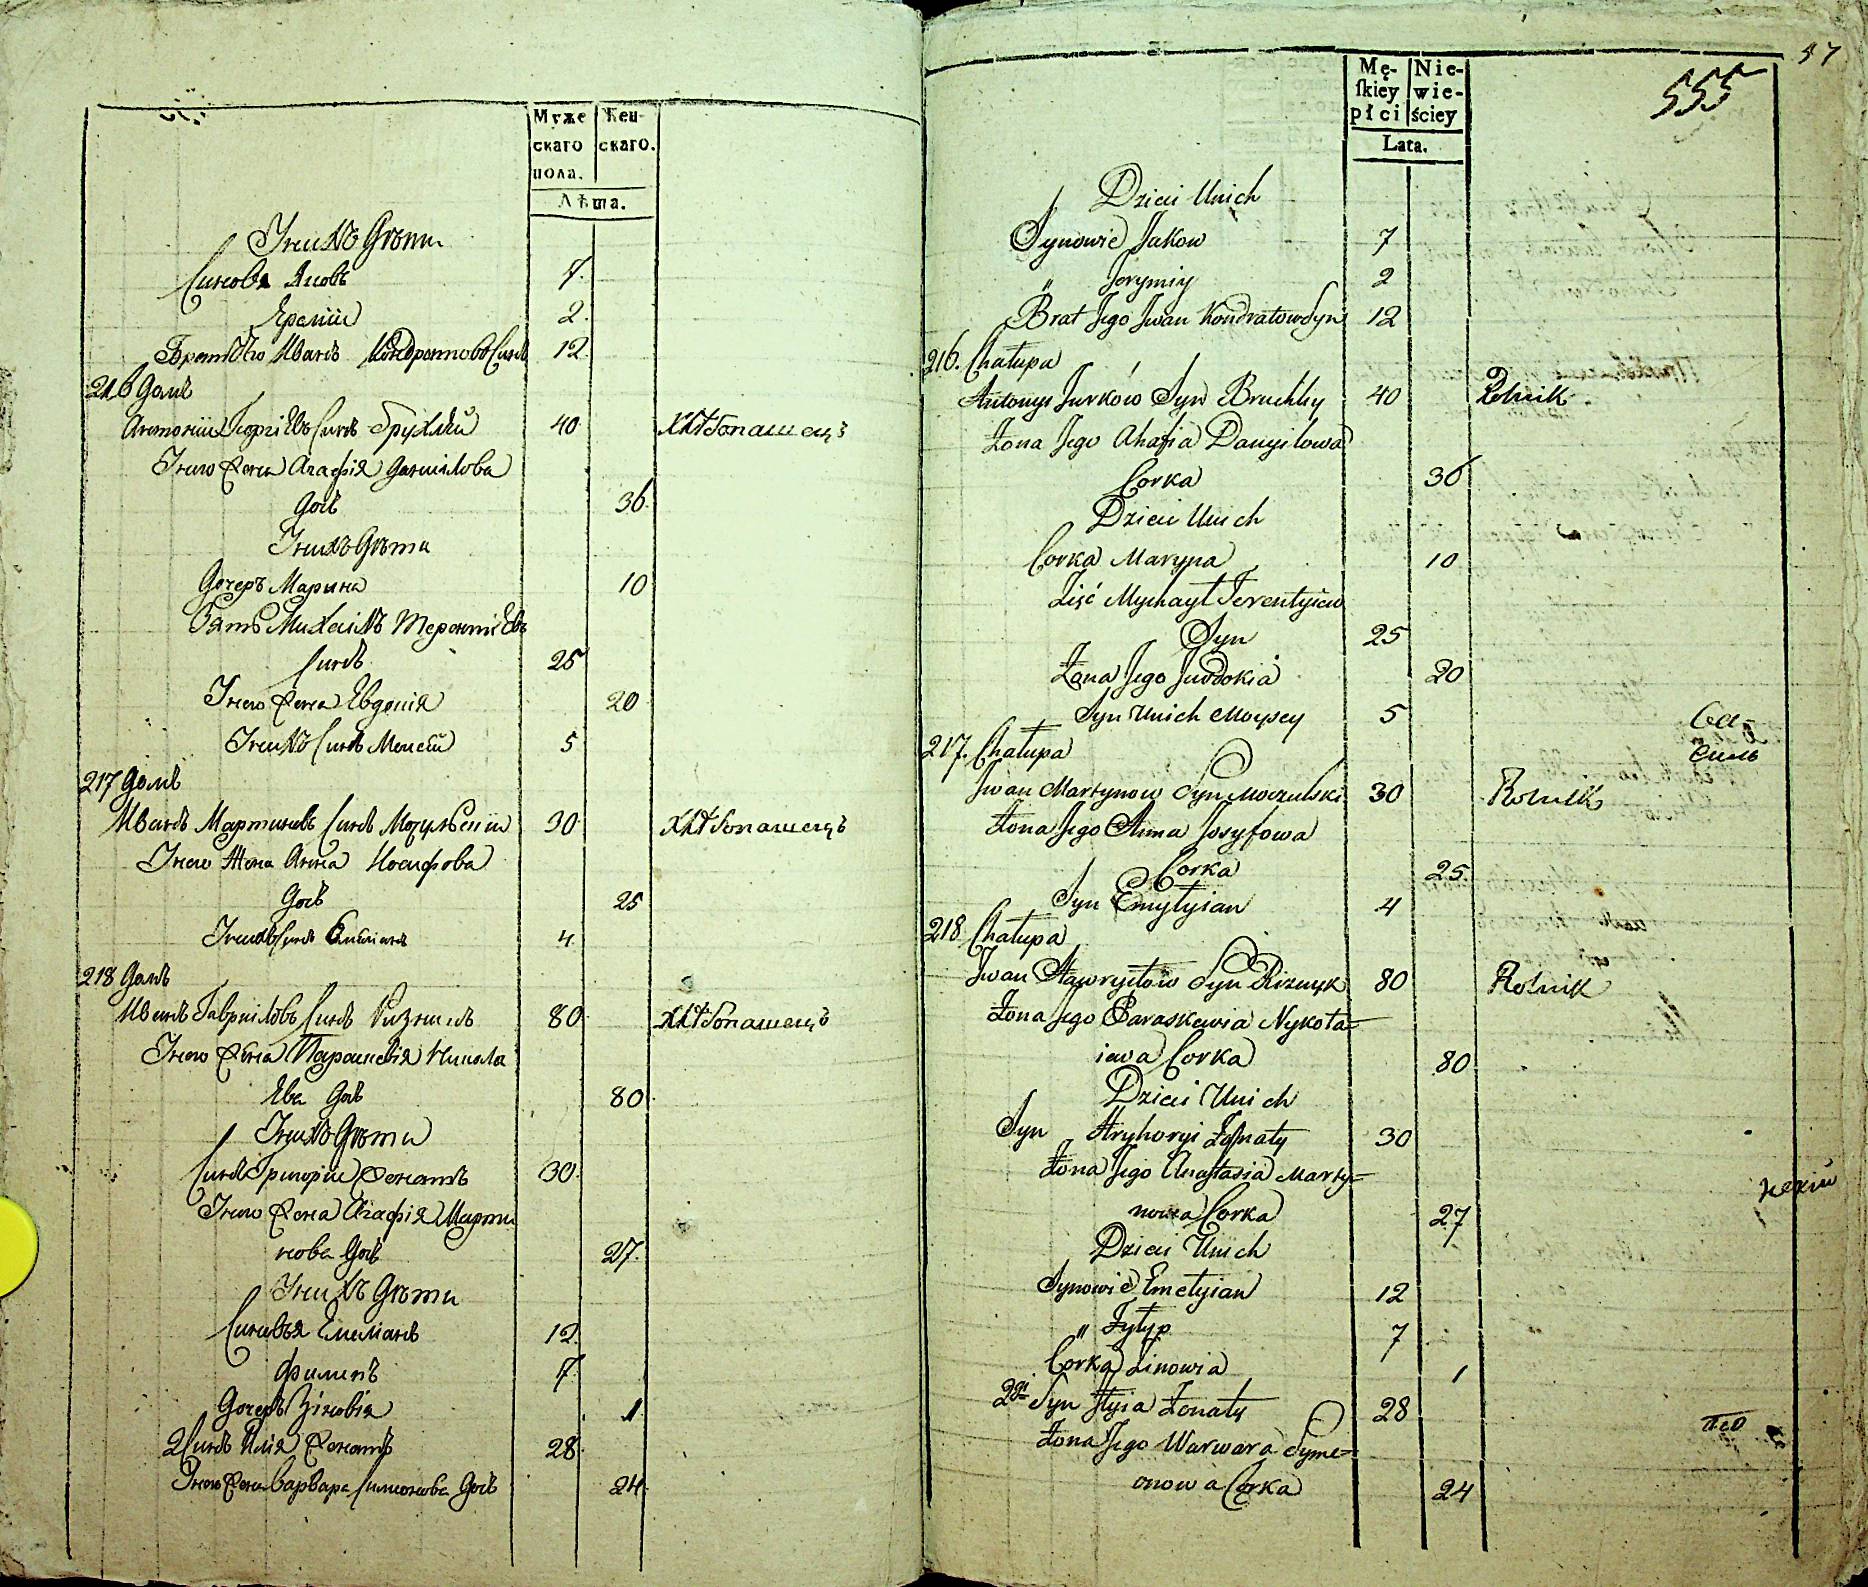 Муже
скаго
пола.
Жен-
скаго.
Лѣта.
У нихъ Дѣти
Синовя Яковъ 7.
Еремій 2.
Братъ Его Иванъ Кондратовъ Синъ 12.
216 Домъ
Антоній Георгіевъ Синъ Брухлій 40 Хлѣбопашецъ
У него Жена Агафія Данилова
Дочь 36.
У нихъ Дѣти
Дочерь Марина 10
Зять Михаилъ Терентіевъ
Синъ 25
У него Жена Евдокія 20
У нихъ Синъ Моисей 5
217 Домъ
Иванъ Мартиновъ Синъ Мочульскій 30 Хлѣбопашецъ
У него Жена Анна Иосифова
Дочь 25
У нихъ Синъ Емиліанъ 4
218 Домъ
Иванъ Гавриловъ Синъ Ризникъ 80 Хлѣбопашецъ
У него Жена Параскевія Никола
Ева Дочь 80
У нихъ Дѣти
Синъ Григорій Женатъ 30.
У него Жена Агафія Марти
нова Дочь 27.
У нихъ Дѣти
Синовья Емиліанъ 12.
Филипъ 7.
Дочерь Зіновія 1
2 Синъ Илія Женатъ 28
У него Жена Варвара Симеонова Дочь 24
57
555
Mę-
skiey
płci
Nie-
wie-
ściey
Lata.
Dzieci Unich
Synowie Jakow 7
" Jerymiy 2
Brat Jego Jwan Kondratow Syn 12
216. Chałupa
Antonyi Jurków Syn Bruchły 40 Rolnik
Żona Jego Ahafia Danyiłowa
Corka 36
Dzieci Unich
Corka Maryna 10
Zięć Mychaył Terentyiew
Syn 25
Żona Jego Juwdokia 20
Syn Unich Moysey 5
Ва-
силь
217. Chałupa
Jwan Martynow Syn Moczulski 30 Rolnik
Żona Jego Anna Josyfowa
Corka 25.
Syn Emyłyian 4
218 Chałupa
Jwan Hawryłow Syn Riznyk 80 Rolnik
Żona Jego Paraskewia Nykoła-
iewa Corka 80
Dzieci Unich
Syn Hryhoryi Żonaty 30
Żona Jego Anastasia Marty-
nowa Corka 27
Dzieci Unich
Synowie Emełyian 12
" Fyłyp 7
Corka Zinowia 1
2gi Syn Jłyia Żonaty 28
Żona Jego Warwara Syme-
onowa Corka 24